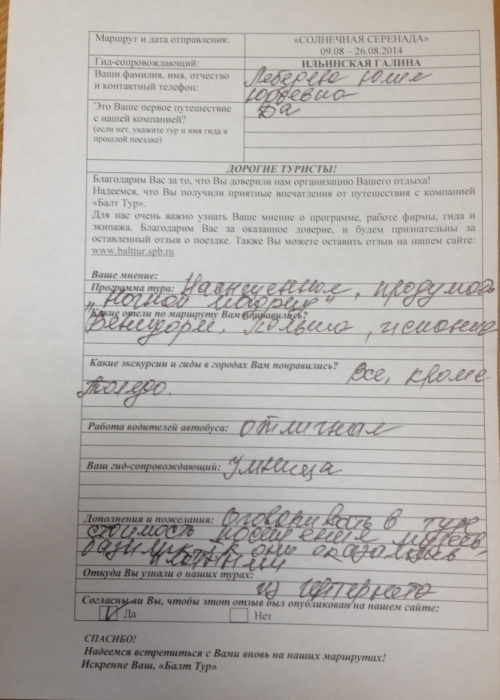 Маршрут и дата отправления: «СОЛНЕЧНАЯ СЕРЕНАДА»
09.08 – 26.08.2014
Гид-сопровождающий: ИЛЬИНСКАЯ ГАЛИНА
Ваши фамилия, имя, отчество
и контактный телефон:
Юрьевна
Это Ваше первое путешествие Да
с нашей компанией?
(если нет, укажите тур и имя гида в
прошлой поездке)
ДОРОГИЕ ТУРИСТЫ!
Благодарим Вас за то, что Вы доверили нам организацию Вашего отдыха!
Надеемся, что Вы получили приятные впечатления от путешествия с компанией
«Балт Тур».
Для нас очень важно узнать Ваше мнение о программе, работе фирмы, гида и
экипажа. Благодарим Вас за оказанное доверие, и будем признательны за
оставленный отзыв о поездке. Также Вы можете оставить отзыв на нашем сайте:
www.balttur.spb.ru
Ваше мнение:
Программа тура: Насыщенная,
„Ночной Мадрид“
Какие отели по маршруту Вам понравились?
Бенидорм, Польша,
Какие экскурсии и гиды в городах Вам понравились? Все, кроме
Толедо.
Работа водителей автобуса: отличная
Ваш гид-сопровождающий: умница
Дополнения и пожелания: Оговаривать в туре
стоимость посещения музеев,
они оказались
платными
Откуда Вы узнали о наших турах:
из интернета
Согласны ли Вы, чтобы этот отзыв был опубликован на нашем сайте:
Да Нет
СПАСИБО!
Надеемся встретиться с Вами вновь на наших маршрутах!
Искренне Ваш, «Балт Тур»